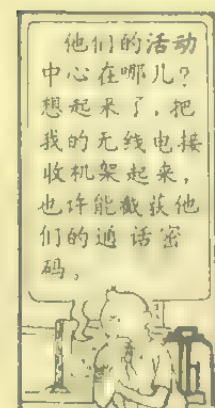 他们的活动
中心在哪儿?
想起来了,把
我的无线电接
收机架起来,
也许能截获他
们的通话密
码。